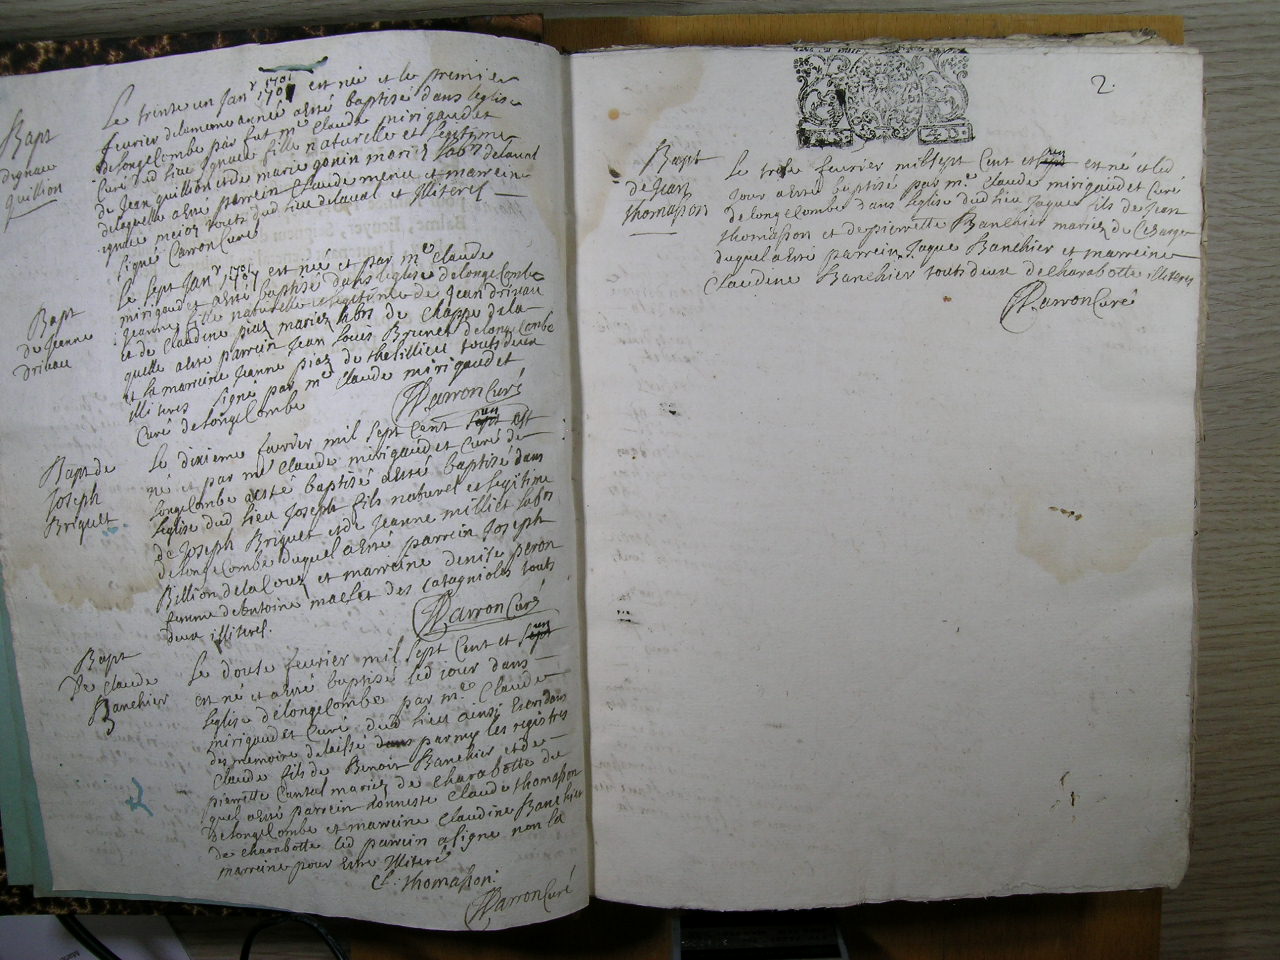 Bapt
dignace
quillion
Le trinte un Janr 1701 est née et le premier
fevrier delamesme année a esté baptisé dans leglise
de longecombe par fut mre Claude mirigaud et
Curé dud lieu Ignace fille naturelle et legitime
de Jean quillion et de marie gonin mariez labrs delaval
delaquelle a esté parrein Claude menu et marreine
touts dud lieu delaval et Illiterés
signé Darron Curé
Bapt
de Jeanne
drivau
Le sept Janr 1701 est née et par mre Claude
mirigaud et a esté baptisé dans leglise de longecombe
Jeanne fille naturelle et legitime de Jean drivau
et de Claudine piaz mariez labrs de Chappe dela
quelle a esté parrein Jean Louis Brunet de longecombe
et la marreine Jeanne piaz de thesillieu touts deux
illiteres signé par mre Claude mirigaud et
Curé de longecombe
Darron Curé
Bapt de
Joseph
Briguet
Le dixieme fevrier mil sept cent un est
né et par mre Claude mirigaud et Curé de
longecombe a esté baptisé dans
leglise dud lieu Joseph fils naturel et legitime
de Joseph Briguet et de Jeanne milliet labrs
de longecombe duquel a esté parrein Joseph
Billion et marreine denise peron
femme de Antoine maclet des Catagnioles touts
deux illiterel.
Darron Curé
Bapt
De Claude
Banchier
Le douze fevrier mil sept Cent et un
est né et a esté baptisé led jour dans
leglise de longecombe par mre Claude
mirigaud et Curé dud lieu ainsi
des memoire delaissé parmy les registres
Claude fils de Benoit Banchier et de
pierrette Cantal mariez de Charabotte du
quel a esté parrein honneste Claude thomasson
de longecombe et marreine Claudine Banchier
de charabotte led parrein a signé non la
marreine pour estre Illiteré
Cl. thomasson
Darron Curé
2.
Bapt
de Jean
thomasson
Le fevrier mil sept Cent et un est né et led
Jour a esté baptisé par mre Claude mirigaud et Curé
de longecombe dans leglise dud lieu Jaque fils de Jean
thomasson et de pierrette Banchier mariez
duquel a esté parrein Jaque Banchier et marreine
Claudine Banchier touts deux de charabotte illiterés
Darron Curé